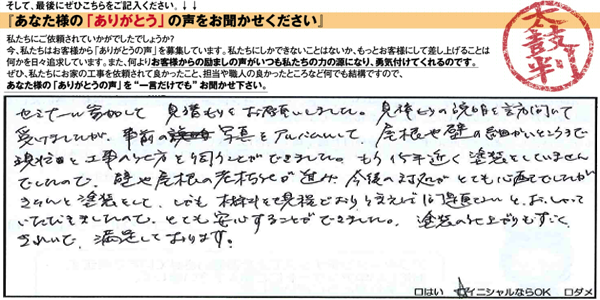 そして、最後にぜひこちらをご記入ください。↓↓
『あなた様の「ありがとう」の声をお聞かせください』
私たちにご依頼されていかがでしたでしょうか?
今、私たちはお客様から「ありがとうの声」を募集しています。私たちにしかできないことはないか、もっとお客様にして差し上げることは
何かを日々追求しています。また、何よりお客様からの励ましの声がいつも私たちの力の源になり、勇気付けてくれるのです。
ぜひ、私たちにお家の工事を依頼されて良かったこと、担当や職人の良かったところなど何でも結構ですので、
あなた様の「ありがとうの声」を“一言だけでも”お聞かせ下さい。
太鼓判
セミナーに参加して 見積もりをお願いしました。見積もりの説明を
受けましたが、事前の 写真をアルバムにして、屋根や壁の細かいところまで
現状と工事の仕方を伺うことができました。もう15年近く塗装をしていません
でしたので、壁や屋根の老朽化が進み、今後の対処がとても心配でしたが
きちんと塗装をして、しかも
いただきましたので、とても安心することができました。塗装の仕上がりもすごく
きれいで、満足しております。
□はい ☆イニシャルならOK □ダメ